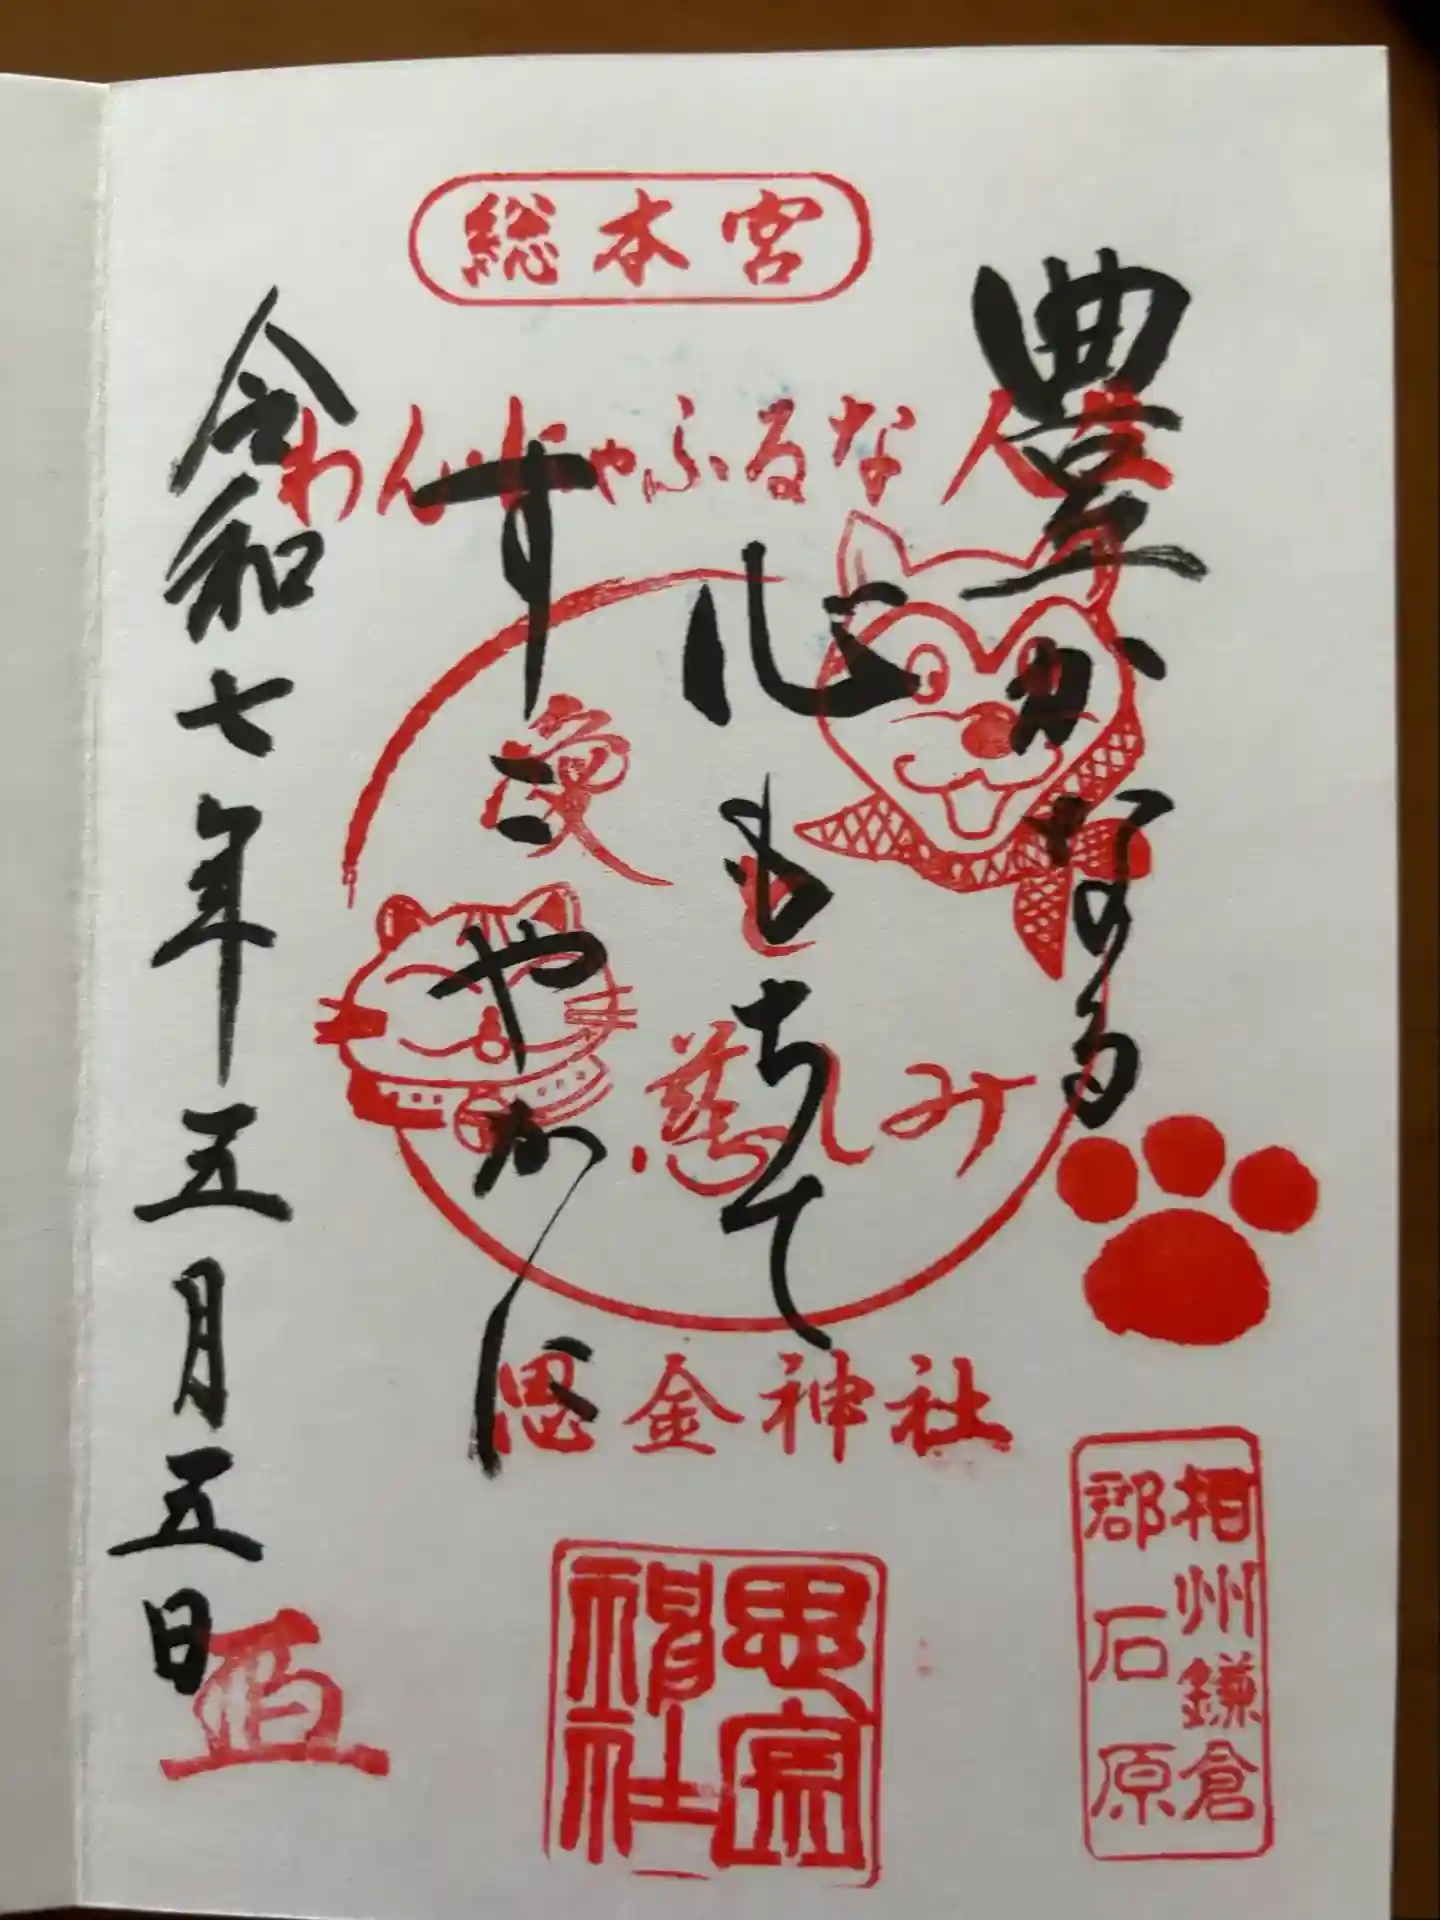 総本宮
わんにゃふるな人生
豊かなる
心もちて
すこやかに
愛
と
慈しみ
思金神社
令和七年五月五日
相州鎌倉
郡石原
思金
神社